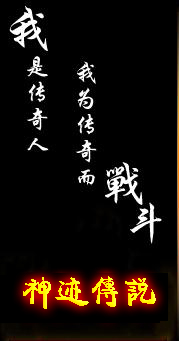 我是传奇人
我为传奇而
戰斗
神迹傳説